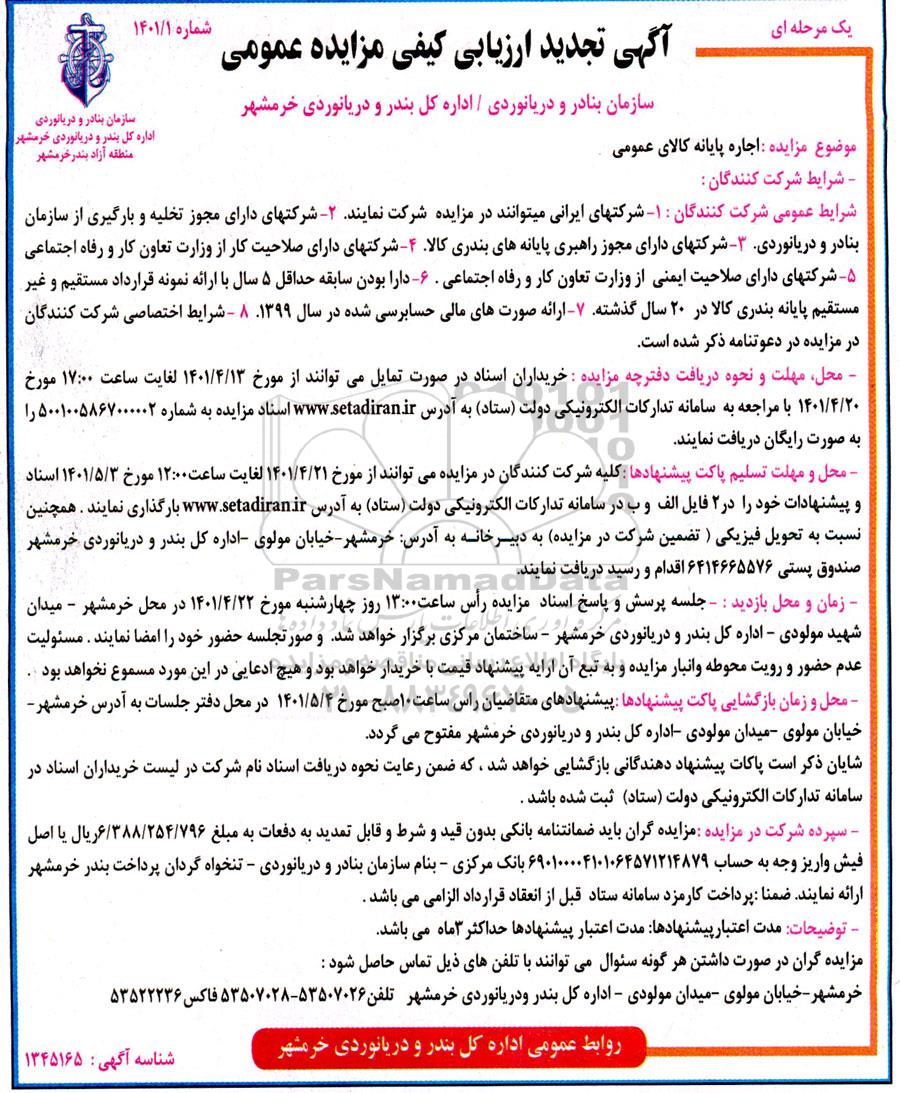 یک مرحله ای
شماره ۱۴۰۱/۱
آگهی تجدید ارزیابی کیفی مزایده عمومی
سازمان بنادر و دریانوردی / اداره کل بندر و دریانوردی خرمشهر
سازمان بنادر و دریانوردی
اداره کل بندر و دریانوردی خرمشهر
منطقه آزاد بندرخرمشهر
موضوع مزایده : اجاره پایانه کالای عمومی
- شرایط شرکت کنندگان :
شرایط عمومی شرکت کنندگان : ۱- شرکتهای ایرانی میتوانند در مزایده شرکت نمایند. ۲- شرکتهای دارای مجوز تخلیه و بارگیری از سازمان
بنادر و دریانوردی. ۳- شرکتهای دارای مجوز راهبری پایانه های بندری کالا. ۴- شرکتهای دارای صلاحیت کار از وزارت تعاون کار و رفاه اجتماعی
۵- شرکتهای دارای صلاحیت ایمنی از وزارت تعاون کار و رفاه اجتماعی . ۶- دارا بودن سابقه حداقل ۵ سال با ارائه نمونه قرارداد مستقیم و غیر
مستقیم پایانه بندری کالا در ۲۰ سال گذشته. ۷- ارائه صورت های مالی حسابرسی شده در سال ۱۳۹۹. ۸ - شرایط اختصاصی شرکت کنندگان
در مزایده در دعوتنامه ذکر شده است.
- محل، مهلت و نحوه دریافت دفترچه مزایده : خریداران اسناد در صورت تمایل می توانند از مورخ ۱۴۰۱/۴/۱۳ لغایت ساعت ۱۷:۰۰ مورخ
۱۴۰۱/۴/۲۰ با مراجعه به سامانه تدارکات الکترونیکی دولت (ستاد) به آدرس www.setadiran.ir اسناد مزایده به شماره ۵۰۰۱۰۰۵۸۶۷۰۰۰۰۰۲ را
به صورت رایگان دریافت نمایند.
- محل و مهلت تسلیم پاکت پیشنهادها : کلیه شرکت کنندگان در مزایده می توانند از مورخ ۱۴۰۱/۴/۲۱ لغایت ساعت ۱۲:۰۰ مورخ ۱۴۰۱/۵/۳ اسناد
و پیشنهادات خود را در ۲ فایل الف و ب در سامانه تدارکات الکترونیکی دولت (ستاد) به آدرس www.setadiran.ir بارگذاری نمایند . همچنین
نسبت به تحویل فیزیکی ( تضمین شرکت در مزایده) به دبیرخانه به آدرس: خرمشهر-خیابان مولوی -اداره کل بندر و دریانوردی خرمشهر
صندوق پستی ۶۴۱۴۶۶۵۵۷۶ اقدام و رسید دریافت نمایند.
- زمان و محل بازدید : - جلسه پرسش و پاسخ اسناد مزایده رأس ساعت ۱۳:۰۰ روز چهارشنبه مورخ ۱۴۰۱/۴/۲۲ در محل خرمشهر - میدان
شهید مولودی - اداره کل بندر و دریانوردی خرمشهر - ساختمان مرکزی برگزار خواهد شد. و صورتجلسه حضور خود را امضا نمایند . مسئولیت
عدم حضور و رویت محوطه وانبار مزایده و به تبع آن ارایه پیشنهاد قیمت با خریدار خواهد بود و هیچ ادعایی در این مورد مسموع نخواهد بود .
- محل و زمان بازگشایی پاکت پیشنهادها : پیشنهادهای متقاضیان راس ساعت ۱۰صبح مورخ ۱۴۰۱/۵/۴ در محل دفتر جلسات به آدرس خرمشهر-
خیابان مولوی -میدان مولودی -اداره کل بندر و دریانوردی خرمشهر مفتوح می گردد.
شایان ذکر است پاکات پیشنهاد دهندگانی بازگشایی خواهد شد ، که ضمن رعایت نحوه دریافت اسناد نام شرکت در لیست خریداران اسناد در
سامانه تدارکات الکترونیکی دولت (ستاد) ثبت شده باشد .
- سپرده شرکت در مزایده : مزایده گران باید ضمانتنامه بانکی بدون قید و شرط و قابل تمدید به دفعات به مبلغ ۶/۳۸۸/۲۵۴/۷۹۶ریال یا اصل
فیش واریز وجه به حساب ۶۹۰۱۰۰۰۰۴۱۰۱۰۶۴۵۷۱۲۱۴۸۷۹ بانک مرکزی - بنام سازمان بنادر و دریانوردی - تنخواه گردان پرداخت بندر خرمشهر
ارائه نمایند. ضمنا :پرداخت کارمزد سامانه ستاد قبل از انعقاد قرارداد الزامی می باشد .
- توضیحات: مدت اعتبارپیشنهادها: مدت اعتبار پیشنهادها حداکثر ۳ماه می باشد.
مزایده گران در صورت داشتن هر گونه سئوال می توانند با تلفن های ذیل تماس حاصل شود :
خرمشهر-خیابان مولوی -میدان مولودی - اداره کل بندر ودریانوردی خرمشهر تلفن ۵۳۵۰۷۰۲۶-۵۳۵۰۷۰۲۸ فاکس ۵۳۵۲۲۲۳۶
روابط عمومی اداره کل بندر و دریانوردی خرمشهر
شناسه آگهی : ۱۳۴۵۱۶۵
ParsNamadData